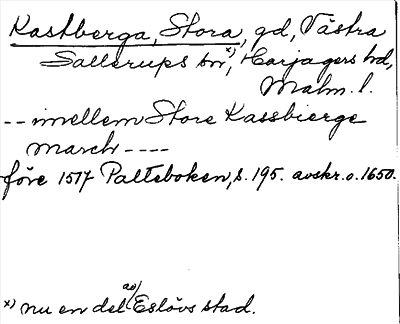 Kastberga, Stora, gd, Västra
Sallerups sn x), Harjagers hd,
Malm. l.
-- imellem Store Kassbierge
march ----
före 1517 Palteboken, s. 195. avskr. o. 1650.
x) nu en del av Eslövs stad.